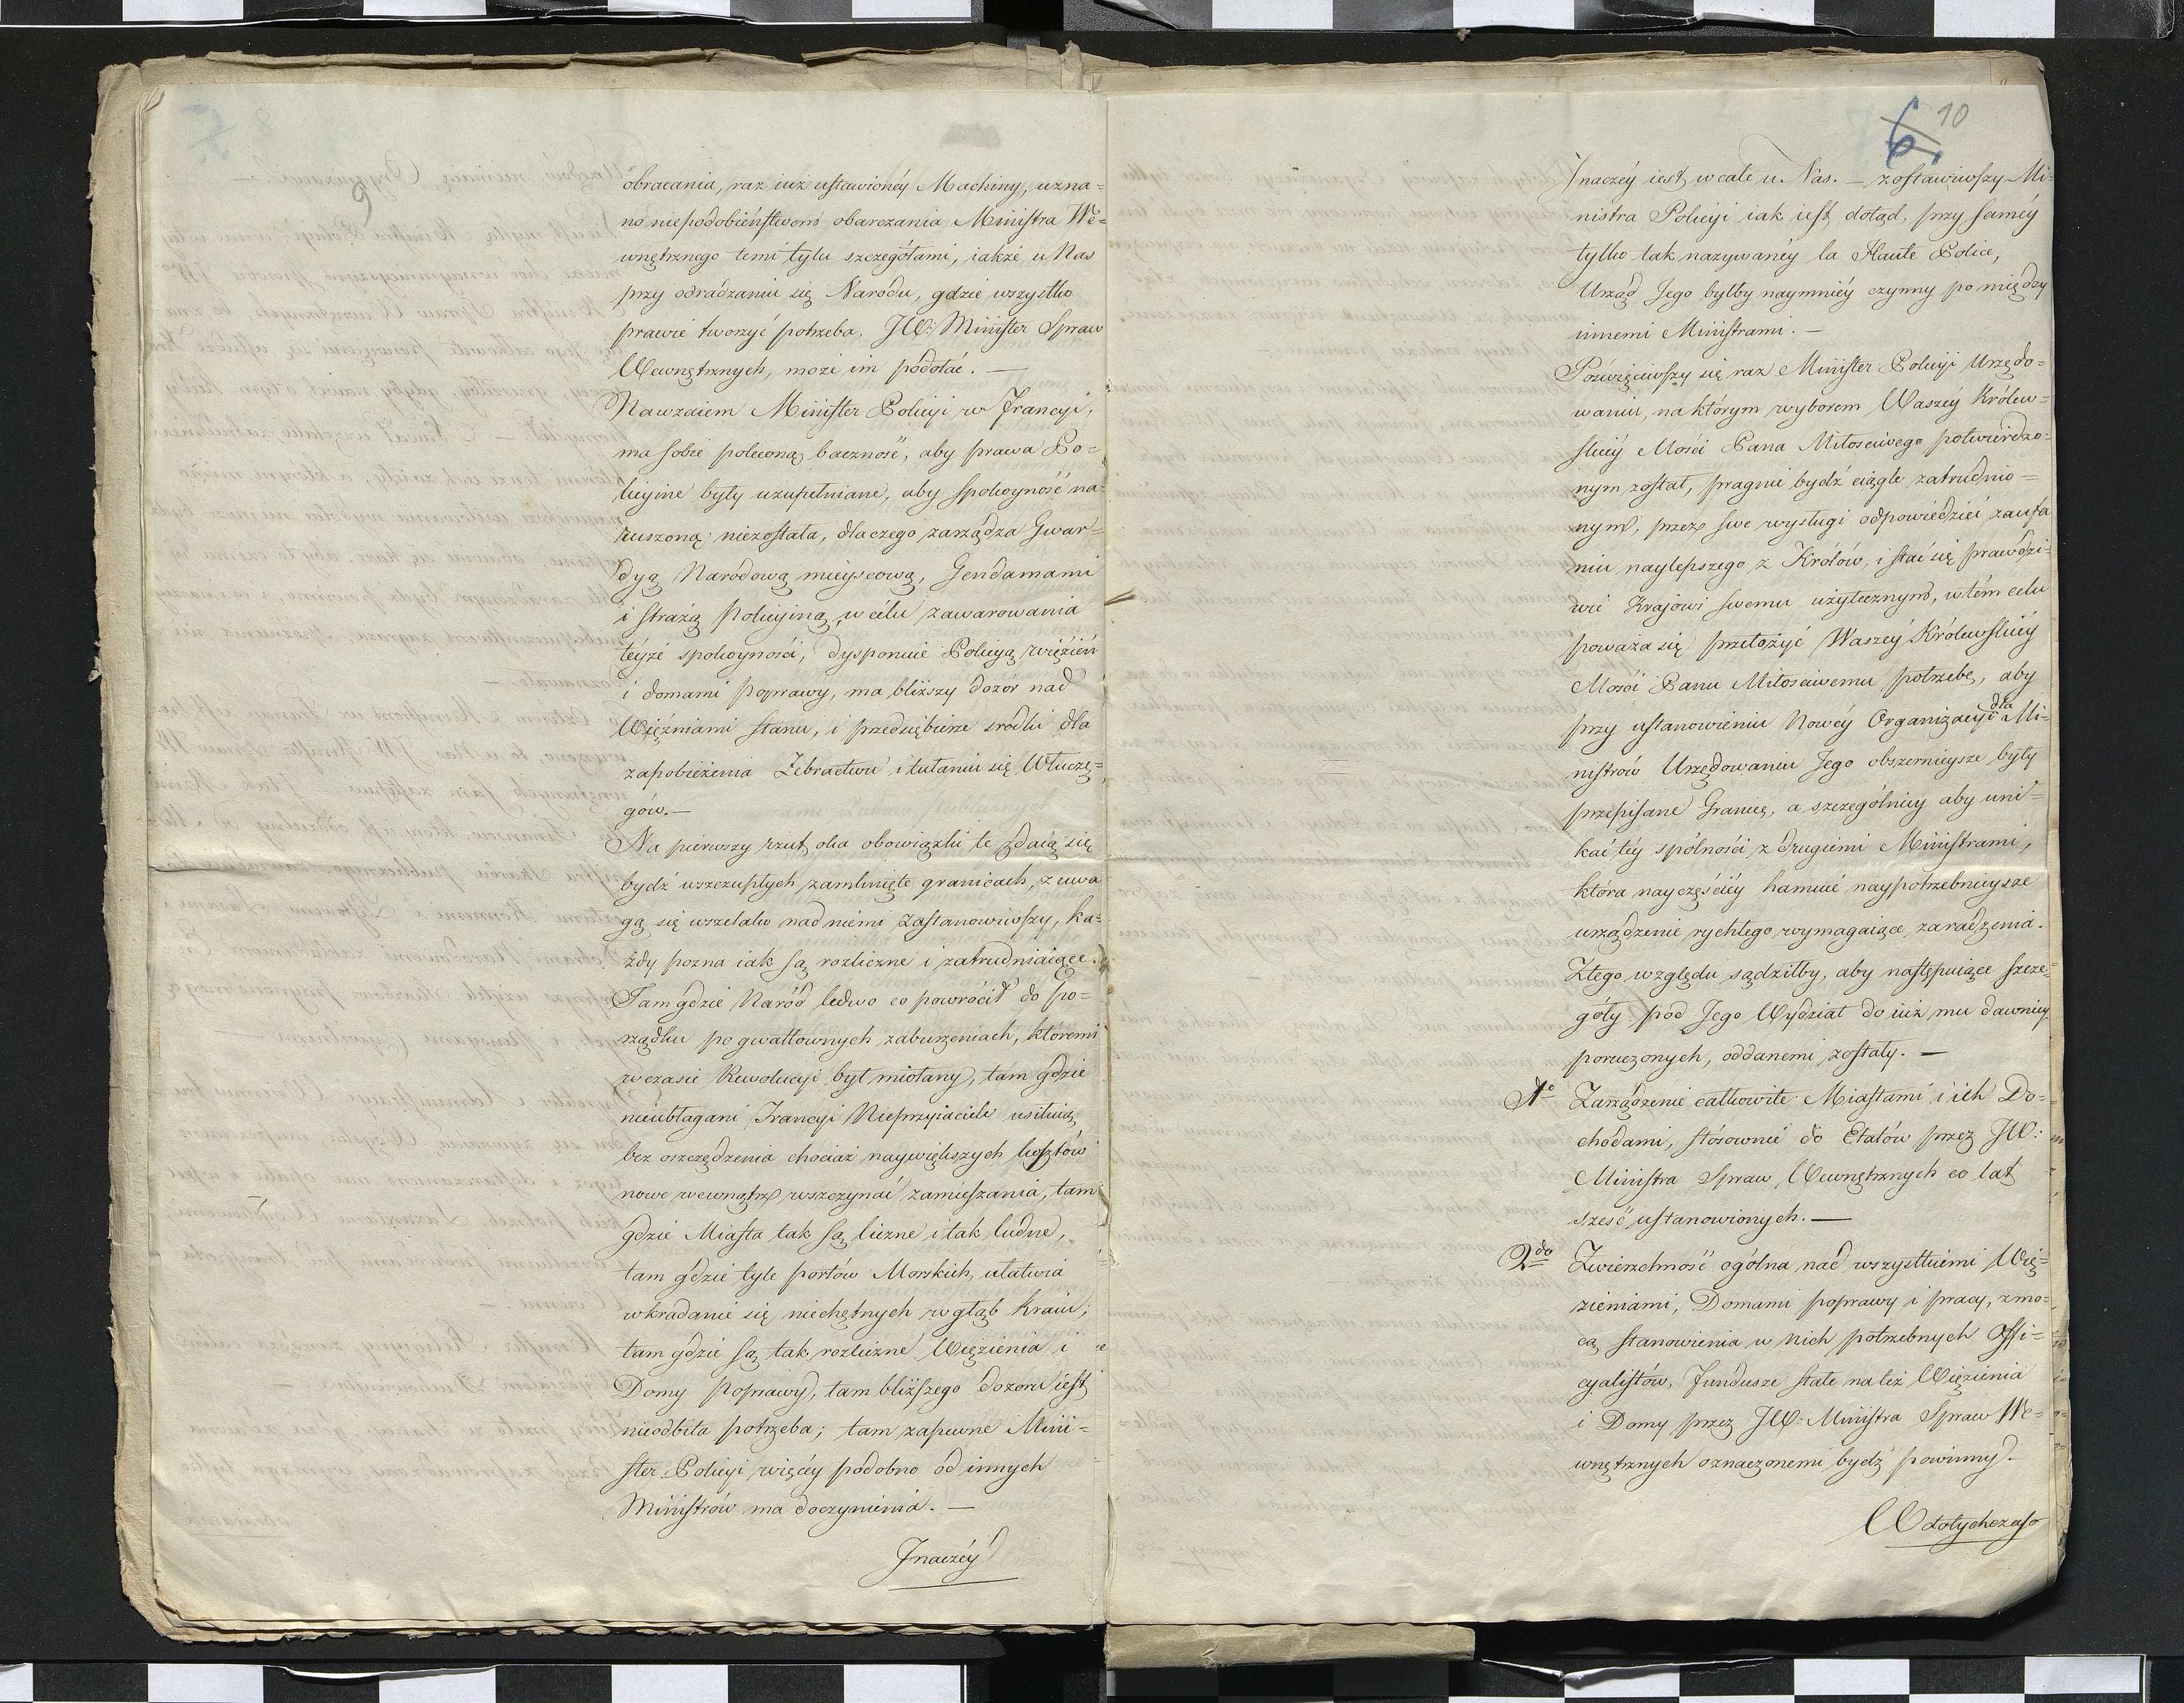 9
obracania, raz iuż ustawionéy Machiny, uzna=
no niepodobieństwem obarczania Ministra We=
wnętrznego temi tylu szczegółami, iakże u Nas
przy odradzaniu się Narodu, gdzie wszystko
prawie tworzyć potrzeba, JW: Minister Spraw
Wewnętrznych, może im podołać. —
Nawzaiem Minister Policyi w Francyi,
ma sobie poleconą baczność, aby prawa Po=
licyine były uzupełniane, aby spokoyność na=
ruszoną niezostała, dlaczego zarządza Gwar=
dyą Narodową mieyscową, Gendamami
i strażą Policyiną, w celu zawarowania
téyże spokoyności, dysponuie Policyą więzień
i domami poprawy, ma bliższy dozór nad
Więźniami stanu, i przedsiębierze srodki dla
zapobieżenia Żebractwu i tułaniu się Włuczę=
gów. —
Na pierwszy rzut oka obowiązki te zdaią się
bydź w szczupłych zamknięte granicach, z uwa
gą się wszelako nad niemi zastanowiwszy, ka=
żdy pozna iak są rozliczne i zatrudniaiące.
Tam gdzie Naród ledwo co powrócił do po=
rządku po gwałtownych zaburzeniach, któremi
w czasie Rewolucyi był miotany, tam gdzie
nieubłagani Francyi Nieprzyiaciele usiłuią
bez oszczędzenia chociaż naywiększych kosztów
nowe wewnątrz wszczynać zamieszania, tam
gdzie Miasta tak są liczne i tak ludne,
tam gdzie tyle portów Morskich, ułatwia
wkradanie się niechętnych w głąb kraiu,
tam gdzie są tak rozliczne Więzienia i
Domy poprawy, tam bliższego dozoru iest
nieodbita potrzeba; tam zapewne Mini=
ster Policyi więcéy podobno od innych
Ministrów ma doczynienia. —
Jnaczéy
6. 10
Jnaczéy iest wcale u Nas. — zostawiwszy Mi=
nistra Policyi iak iest dotąd, przy saméy
tylko tak nazywanéy la Haute Police,
Urząd Jego byłby naymniéy czynny pomiędzy
innemi Ministrami. —
Poświęciwszy się raz Minister Policyi Urzędo=
waniu, na którym wyborem Waszéy Królew=
skiéy Mości Pana Miłosciwego potwierdzo=
nym został, pragnie bydź ciągle zatrudnio=
nym, przez swe wysługi odpowiedzieć zaufa
niu naylepszego z Królów, i stać się prawdzi=
wie Krajowi swemu użytecznym, w tém celu
poważa się przełożyć Waszéy Królewskiéy
Mości Panu Miłosciwemu potrzebę, aby
przy ustanowieniu Nowéy Organizacyi dla Mi=
nistrów Urzędowaniu Jego obszernieysze były
przepisane Granice, a szczególniey aby uni=
kać téy spólności z drugiemi Ministrami,
która nayczęściéy hamuie naypotrzebnieysze
urządzenie rychłego wymagaiące zaradzenia.
Z tego względu sądziłby, aby następuiące szcze=
góły pod Jego Wydział do iuż mu dawniey
poruczonych, oddanemi zostały. —
1o Zarządzenie całkowite Miastami i ich Do=
chodami, stósownie do Etatów przez JW:
Ministra Spraw Wewnętrznych co lat
sześć ustanowionych. —
2do Zwierzchność ogólna nad wszystkiemi Wię=
zieniami, Domami poprawy i pracy, z mo=
cą stanowienia w nich potrzebnych Offi=
cyalistów, Fundusze stałe na też Więzienia
i Domy przez JW: Ministra Spraw We=
wnętrznych oznaczonemi bydź powinny. —
W dotychczaso